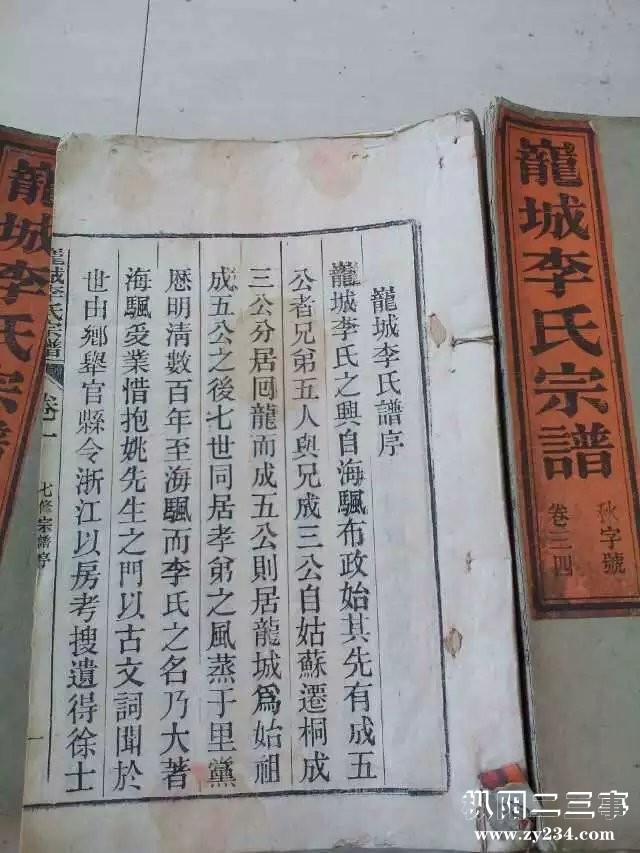 龍城李氏宗譜
秋字號
卷三四
龍城李氏譜序
龍城李氏之興自海颿布政始其先有成五
公者兄弟五人與兄成三公自姑蘇遷桐成
三公分居回龍而成五公則居龍城爲始祖
成五公之後七世同居孝弟之風蒸于里黨
歷明清數百年至海颿而李氏之名乃大著
海颿受業惜抱姚先生之門以古文詞聞於
世由鄉舉官縣令浙江以房考搜遺得徐士
龍城李氏宗譜
卷一
七修宗譜序
一
龍城李氏宗譜
枞阳二三事
www.zy234.com